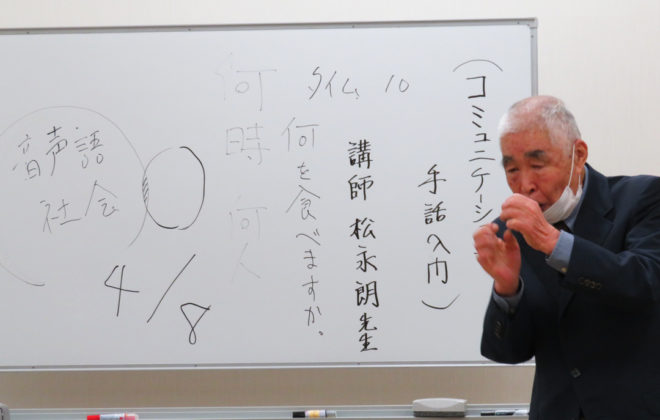 (コミュニケーシ
手話入門)
講師 松永朗先生
タイム 10
何を食べますか。
何時 何人
音声語
社会
4/8